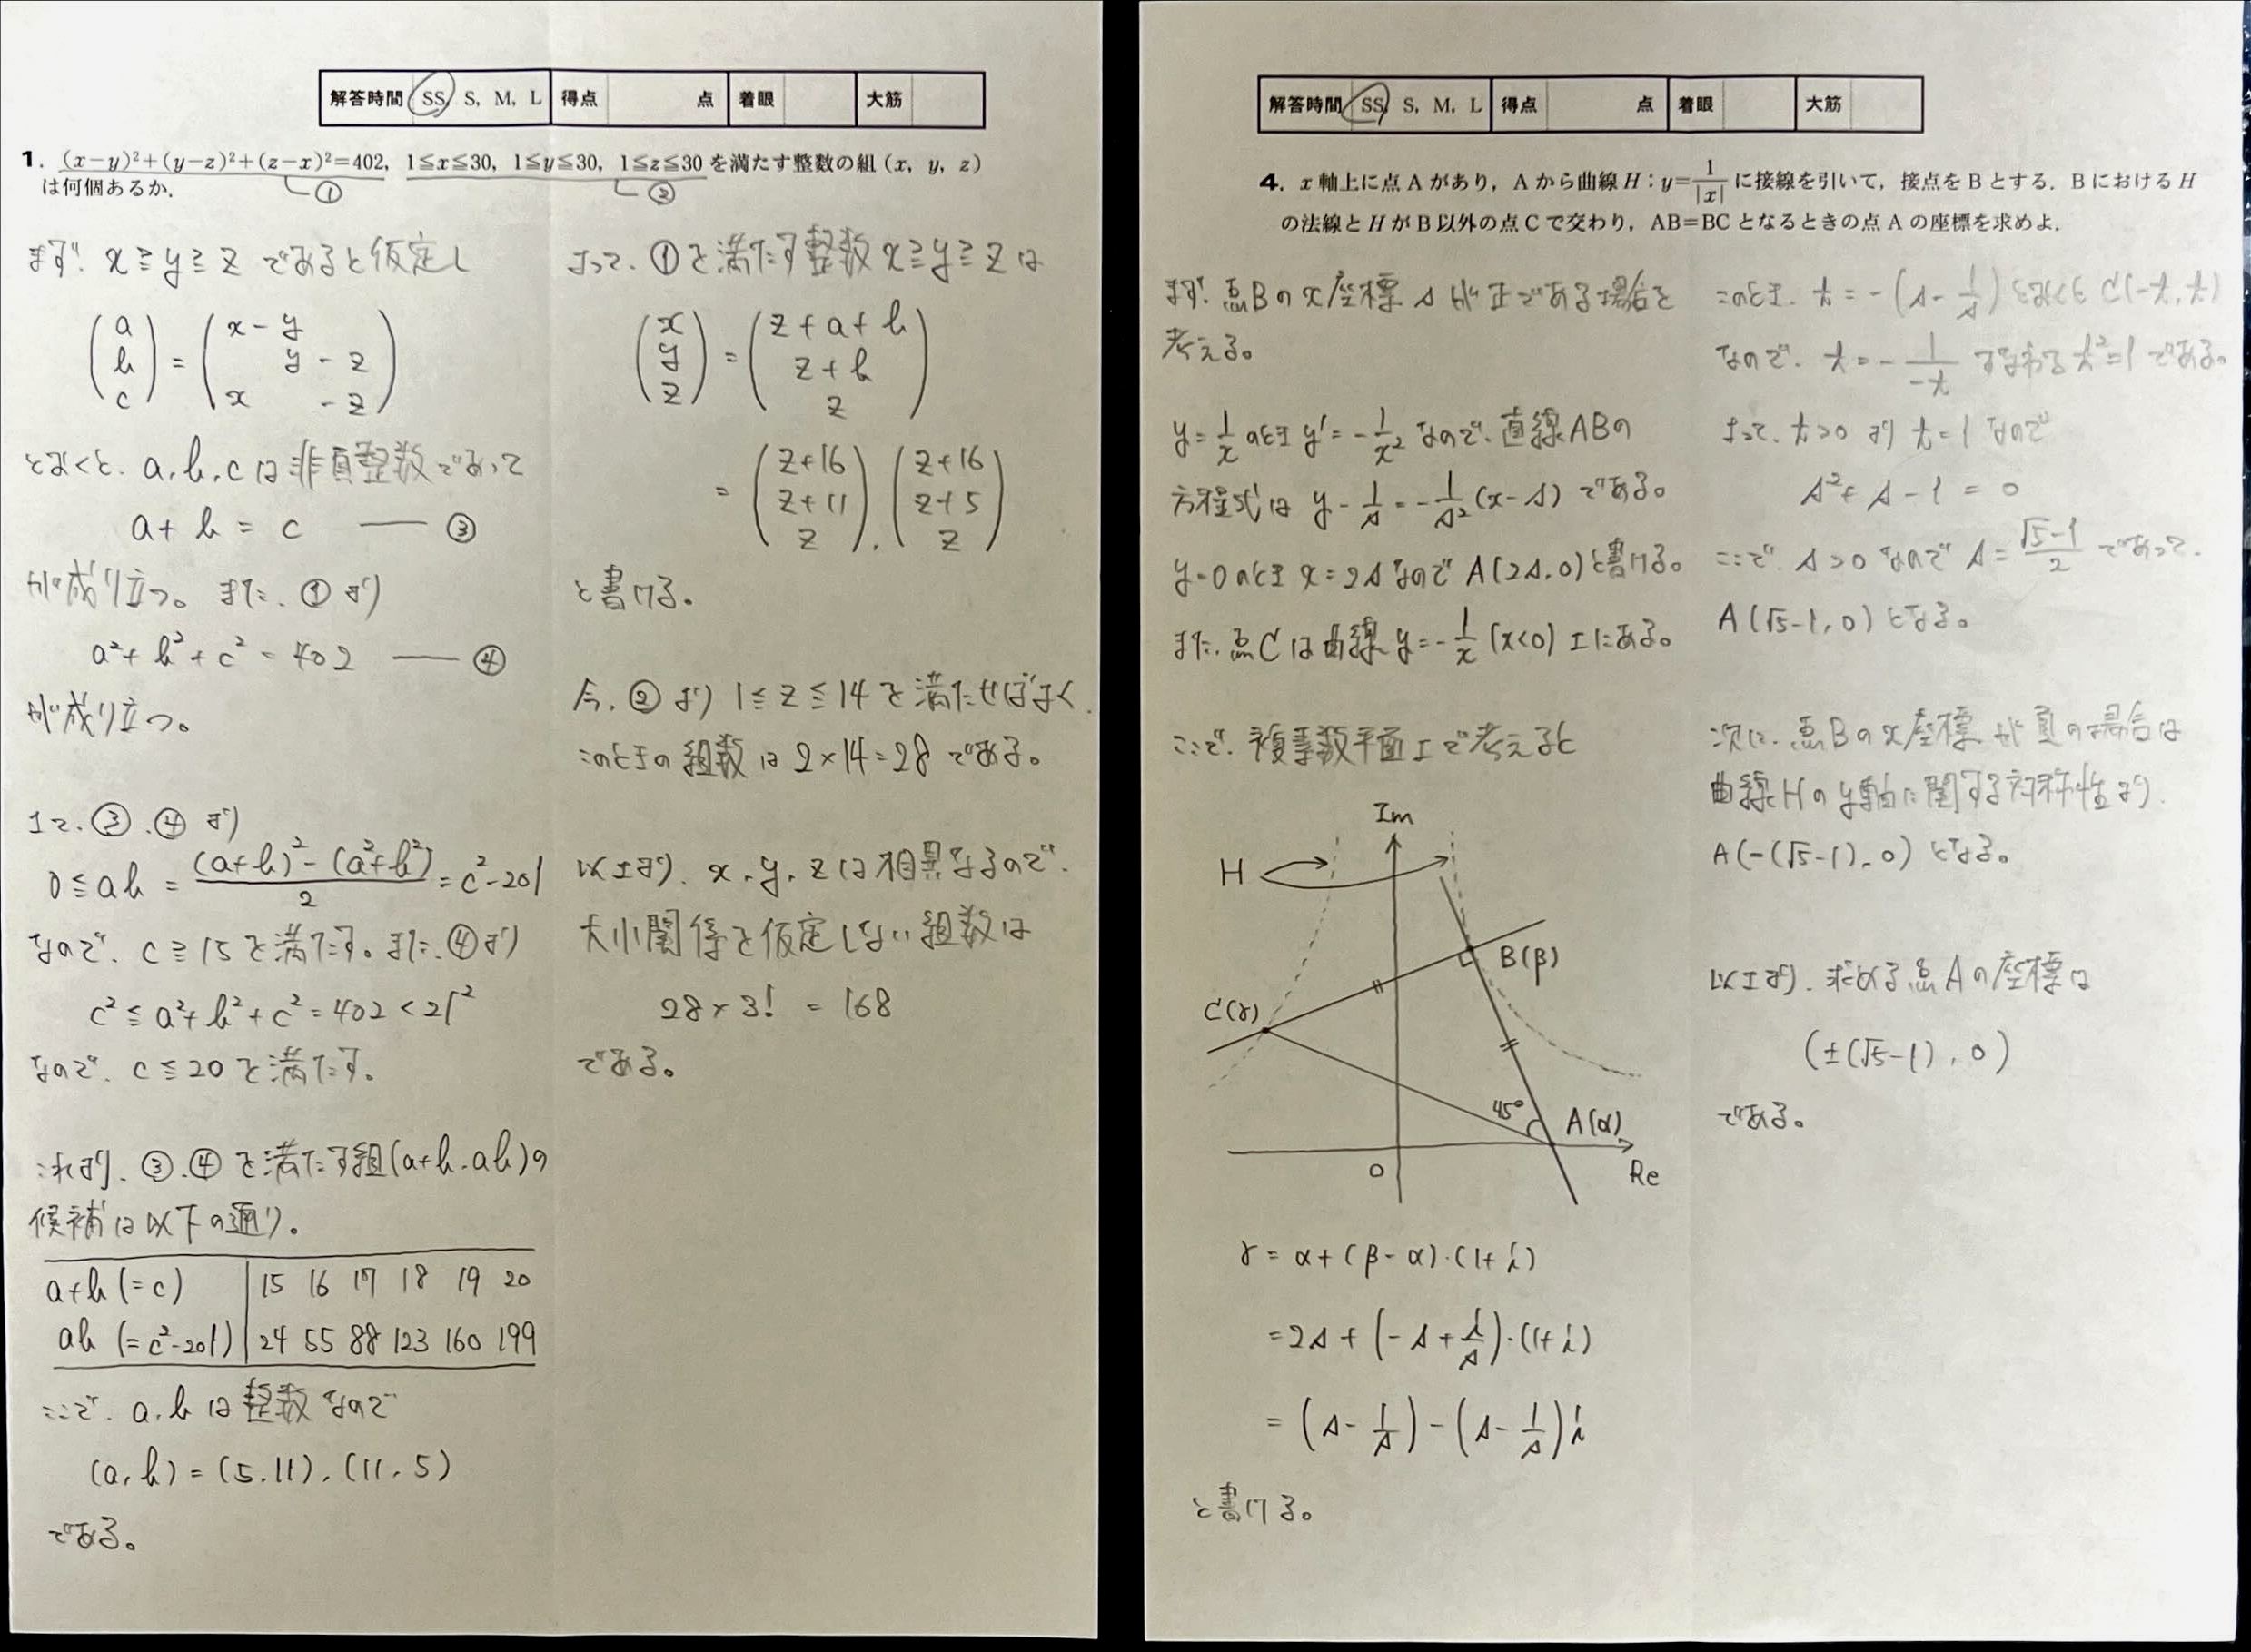 解答時間 SS, S, M, L 得点 点 着眼 大筋
1. (x−y)²+(y−z)²+(z−x)²=402, 1≦x≦30, 1≦y≦30, 1≦z≦30 を満たす整数の組 (x, y, z)
は何個あるか.
① ②
まず、x≧y≧z であると仮定し
(a b c) = (x−y y−z x−z)
とおくと、a, b, c は非負整数であって
a+b = c ── ③
が成り立つ。また、①より
a²+b²+c² = 402 ── ④
が成り立つ。
さて、③、④より
0≦ab = ((a+b)²−(a²+b²))/2 = c²−201
なので、c≧15 を満たす。また、④より
c²≦a²+b²+c²=402<21²
なので、c≦20 を満たす。
これより、③、④を満たす組(a+b, ab)の
候補は以下の通り。
a+b (=c) 15 16 17 18 19 20
ab (=c²−201) 24 55 88 123 160 199
ここで、a, b は整数なので
(a, b) = (5, 11), (11, 5)
である。
よって、①を満たす整数 x≧y≧z は
(x y z) = (z+a+b z+b z)
= (z+16 z+11 z), (z+16 z+5 z)
と書ける。
今、②より 1≦z≦14 を満たせばよく、
このときの組数は 2×14=28 である。
以上より、x, y, z は相異なるので、
大小関係を仮定しない組数は
28×3! = 168
である。
解答時間 SS, S, M, L 得点 点 着眼 大筋
4. x 軸上に点 A があり, A から曲線 H : y=1/|x| に接線を引いて, 接点を B とする. B における H
の法線と H が B 以外の点 C で交わり, AB=BC となるときの点 A の座標を求めよ.
まず、点Bの x 座標 s が正である場合を
考える。
y=1/x のとき y'=−1/x² なので、直線ABの
方程式は y−1/s=−1/s²(x−s) である。
y=0 のとき x=2s なので A(2s, 0) と書ける。
また、点Cは曲線 y=−1/x (x<0) 上にある。
ここで、複素数平面上で考えると
Im
H
B(β)
C(γ)
45°
A(α)
O
Re
γ = α+(β−α)·(1+i)
= 2s+(−s+i/s)·(1+i)
= (s−1/s)−(s−1/s)i
と書ける。
このとき、t=−(s−1/s) とおくと C(−t, t)
なので、t=−1/−t すなわち t²=1 である。
よって、t>0 より t=1 なので
s²+s−1 = 0
ここで s>0 なので s=(√5−1)/2 であって、
A(√5−1, 0) となる。
次に、点Bの x 座標が負の場合は
曲線Hの y 軸に関する対称性より、
A(−(√5−1), 0) となる。
以上より、求める点Aの座標は
(±(√5−1), 0)
である。